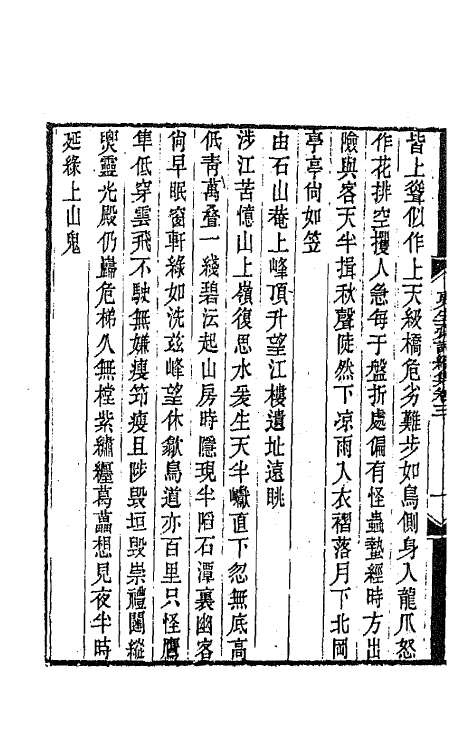 皆上聳似作上天級橋危劣難步如鳥側身入龍爪怒
作花排空攫人急每于盤折處偏有怪蟲蟄經時方出
險與客天半揖秋聲陡然下凉雨入衣褶落月下北岡
亭亭尙如笠
由石山菴上峰頂升望江樓遺址遠眺
涉江苦憶山上嶺復思水爰生天半巘直下忽無底高
低靑萬叠一綫碧沄起山房時隱現半陷石潭裏幽客
尙早眠窗軒綠如洗兹峰望休歇鳥道亦百里只怪鷹
隼低穿雲飛不駛無嫌瘦筇瘦且陟毀垣毀崇禮闢縱
奧靈光殿仍巋危梯久無樘紫繡纒葛藟想見夜半時
延緣上山鬼
更生齋詩續集卷三
一